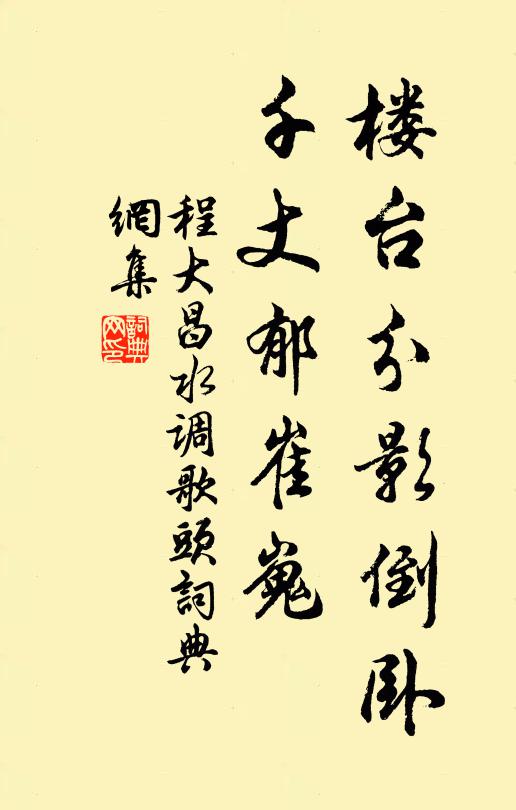 楼台分影倒卧
千丈郁崔嵬
程大昌水调歌头詞典
網集
詞典
网印